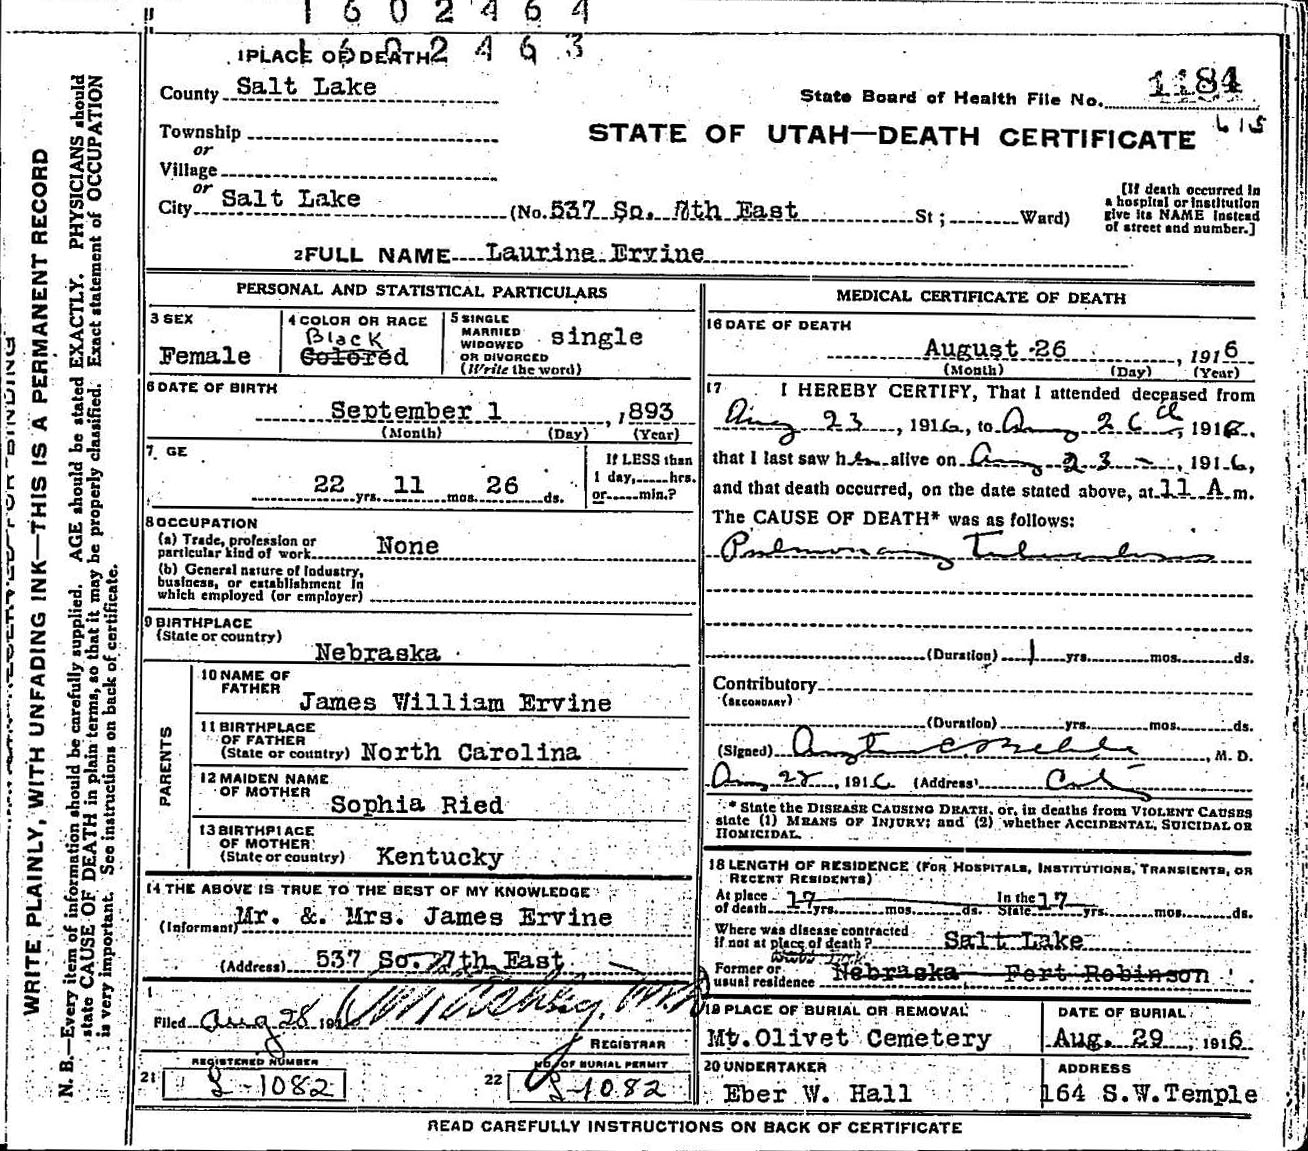 1 6 0 2 4 6 4
1 6 0 2 4 6 3
1 PLACE OF DEATH
County Salt Lake
State Board of Health File No. 1184
615
Township
or
Village
or
City Salt Lake (No. 537 So. 7th East St; Ward)
STATE OF UTAH—DEATH CERTIFICATE
[If death occurred in a hospital or institution give its NAME instead of street and number.]
2 FULL NAME Laurine Ervine
PERSONAL AND STATISTICAL PARTICULARS
3 SEX
Female
4 COLOR OR RACE
Black
Colored
5 SINGLE
MARRIED
WIDOWED
OR DIVORCED
(Write the word)
single
6 DATE OF BIRTH
September 1, 1893
(Month) (Day) (Year)
7 GE
22 yrs. 11 mos. 26 ds.
If LESS than
1 day, hrs.
or min.?
8 OCCUPATION
(a) Trade, profession or
particular kind of work None
(b) General nature of Industry,
business, or establishment in
which employed (or employer)
9 BIRTHPLACE
(State or country)
Nebraska
PARENTS
10 NAME OF
FATHER
James William Ervine
11 BIRTHPLACE
OF FATHER
(State or country) North Carolina
12 MAIDEN NAME
OF MOTHER
Sophia Ried
13 BIRTHPLACE
OF MOTHER
(State or country) Kentucky
14 THE ABOVE IS TRUE TO THE BEST OF MY KNOWLEDGE
(Informant) Mr. &. Mrs. James Ervine
(Address) 537 So. 7th East
Filed Aug 28 191
REGISTRAR
21 REGISTERED NUMBER
L-1082
22 NO. OF BURIAL PERMIT
L-1082
MEDICAL CERTIFICATE OF DEATH
16 DATE OF DEATH
August 26, 1916
(Month) (Day) (Year)
17 I HEREBY CERTIFY, That I attended deceased from
Aug 23, 1916, to Aug 26th, 1916.
that I last saw her alive on Aug 23 -, 1916,
and that death occurred, on the date stated above, at 11 A.m.
The CAUSE OF DEATH* was as follows:
Pulmonary Tuberculosis
(Duration) 1 yrs. mos. ds.
Contributory
(SECONDARY)
(Duration) yrs. mos. ds.
(Signed) M. D.
Aug 28, 1916 (Address) City
* State the DISEASE CAUSING DEATH, or, in deaths from VIOLENT CAUSES
state (1) MEANS OF INJURY; and (2) whether ACCIDENTAL, SUICIDAL OR
HOMICIDAL.
18 LENGTH OF RESIDENCE (FOR HOSPITALS, INSTITUTIONS, TRANSIENTS, OR
RECENT RESIDENTS)
At place
of death 17 yrs. mos. ds. In the State 17 yrs. mos. ds.
Where was disease contracted
if not at place of death? Salt Lake
Former or
usual residence Nebraska Fort Robinson
19 PLACE OF BURIAL OR REMOVAL
Mt. Olivet Cemetery
DATE OF BURIAL
Aug. 29, 1916
20 UNDERTAKER
Eber W. Hall
ADDRESS
164 S.W.Temple
READ CAREFULLY INSTRUCTIONS ON BACK OF CERTIFICATE
WRITE PLAINLY, WITH UNFADING INK—THIS IS A PERMANENT RECORD
N. B.—Every item of information should be carefully supplied. AGE should be stated EXACTLY. PHYSICIANS should
state CAUSE OF DEATH in plain terms, so that it may be properly classified. Exact statement of OCCUPATION
is very important. See instructions on back of certificate.